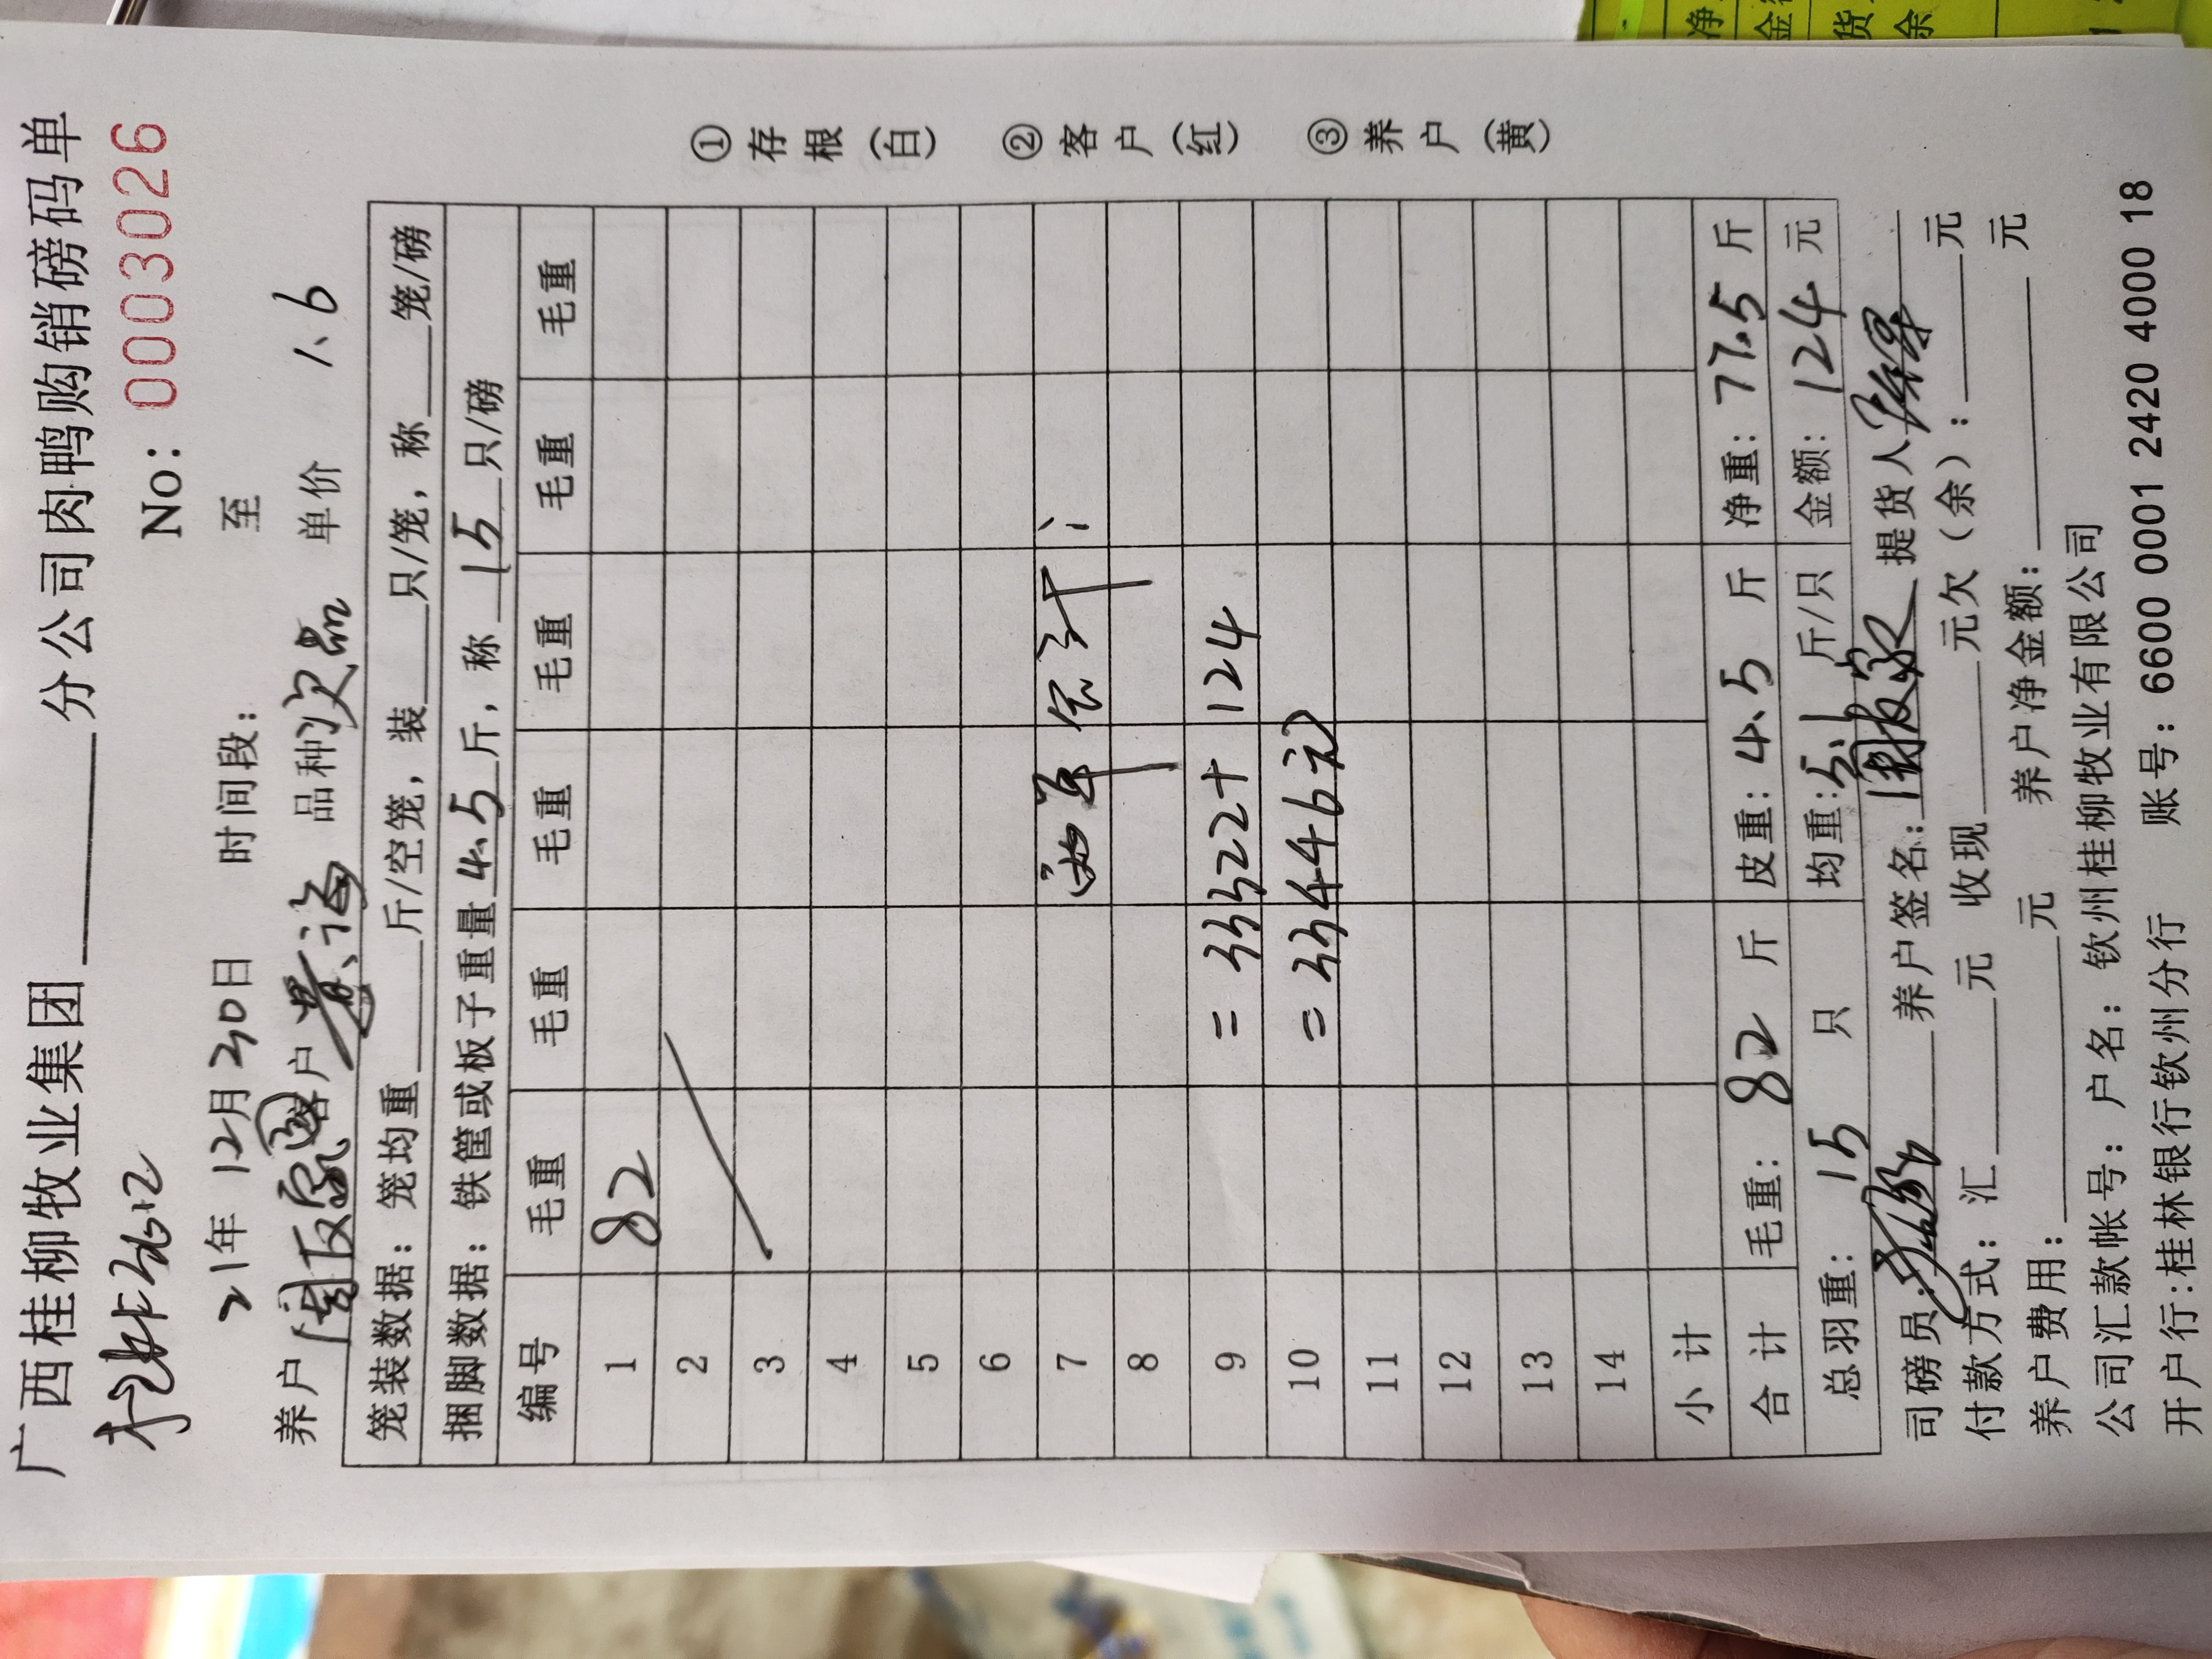 广西桂柳牧业集团______分公司肉鸭购销磅码单
No: 0003026
21年 12月 30日 时间段: 至
养户 客户 黄海 品种 次品 单价 1.6
笼装数据: 笼均重____斤/空笼, 装____只/笼, 称____笼/磅
捆脚数据: 铁筐或板子重量 4.5 斤, 称 15 只/磅
编号 毛重 毛重 毛重 毛重 毛重 毛重
1 82
2
3
4
5
6
7 两单合计:
8
9 = 33322+124
10 = 33446元
11
12
13
14
小计
合计 毛重: 82 斤 皮重: 4.5 斤 净重: 77.5 斤
总羽重: 15 只 均重: 5.1 斤/只 金额: 124 元
司磅员: 养户签名: 提货人
付款方式: 汇____元 收现____元欠(余): ____元
养户费用: ____元 养户净金额: ____元
公司汇款帐号: 户名: 钦州桂柳牧业有限公司
开户行:桂林银行钦州分行 账号: 6600 0001 2420 4000 18
①存根(白) ②客户(红) ③养户(黄)
净
金
货
余